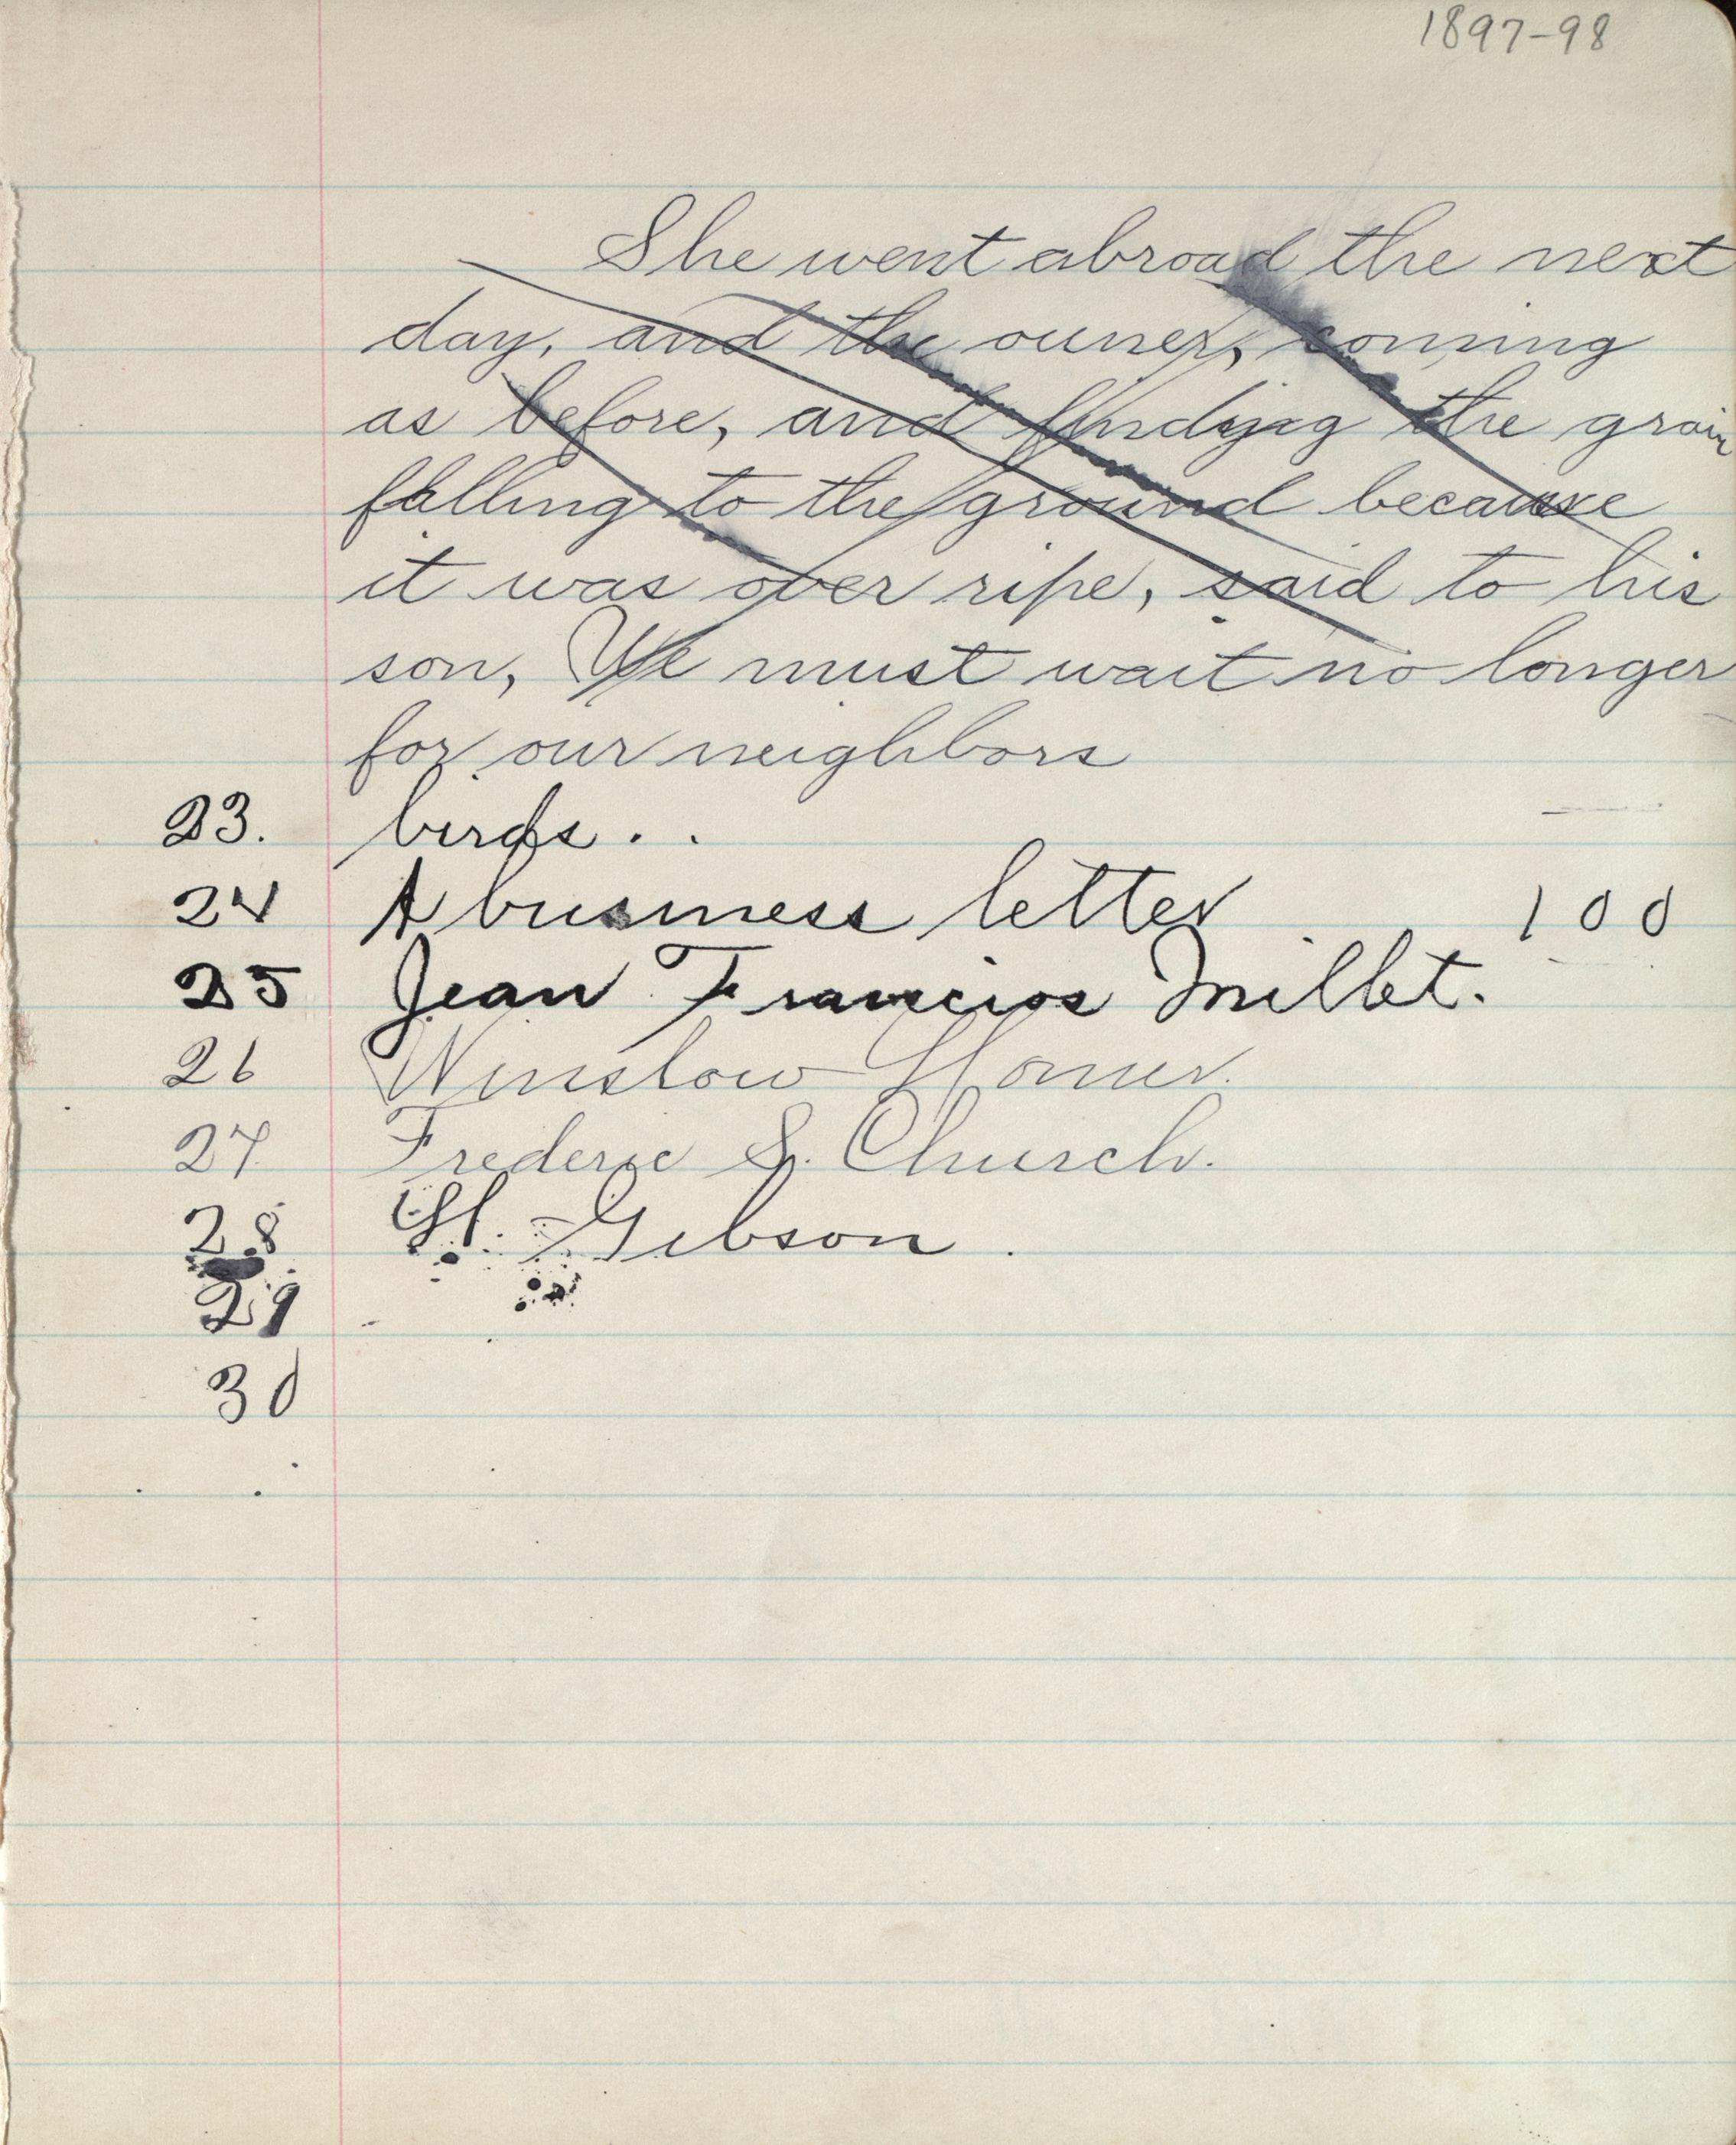 1897-98
She went abroad the next
day, and the owner, coming
as before, and finding the grain
falling to the ground because
it was over ripe, said to his
son, We must wait no longer
for our neighbors
23. birds..
24 A business letter 100
25 Jean Francios Millet.
26 Winslow Homer.
27 Frederic S. Church.
28 H. Gibson.
29
30